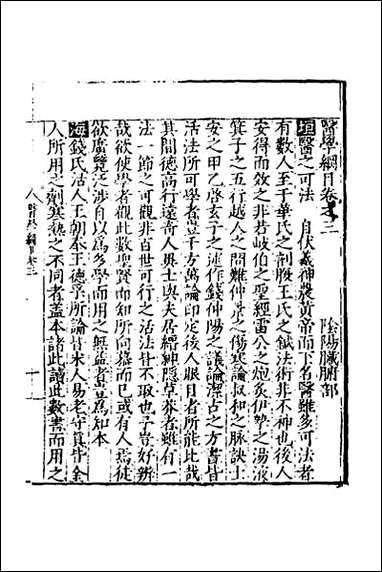 醫學綱目卷之三
陰陽臟腑部
垣醫之可法 自伏羲神農黃帝而下名醫雖多可法者
有數人至于華氏之剖腹王氏之鍼法術非不神也後人
安得而效之非若岐伯之聖經雷公之炮炙伊摯之湯液
箕子之五行越人之問難仲景之傷寒論叔和之脉訣士
安之甲乙啓玄子之述作錢仲陽之議論潔古之方書皆
活法所可學者豈千方萬論印定後人眼目者所能比哉
其間德高行遠奇人異士與夫居縉紳隱草莽者雖有一
法一節之可觀非百世可行之活法卄不取也予豈好辨
哉欲使學者觀此數聖賢而知所向慕而已或有人焉徒
欲廣覽泛涉自以爲多學而用之無益者豈爲知本
海錢氏活人王朝奉王德孚所論皆宋人易老守真皆金
人所用之劑寒熱之不同者盖本諸此讀此數書而用之
醫學綱目卷三